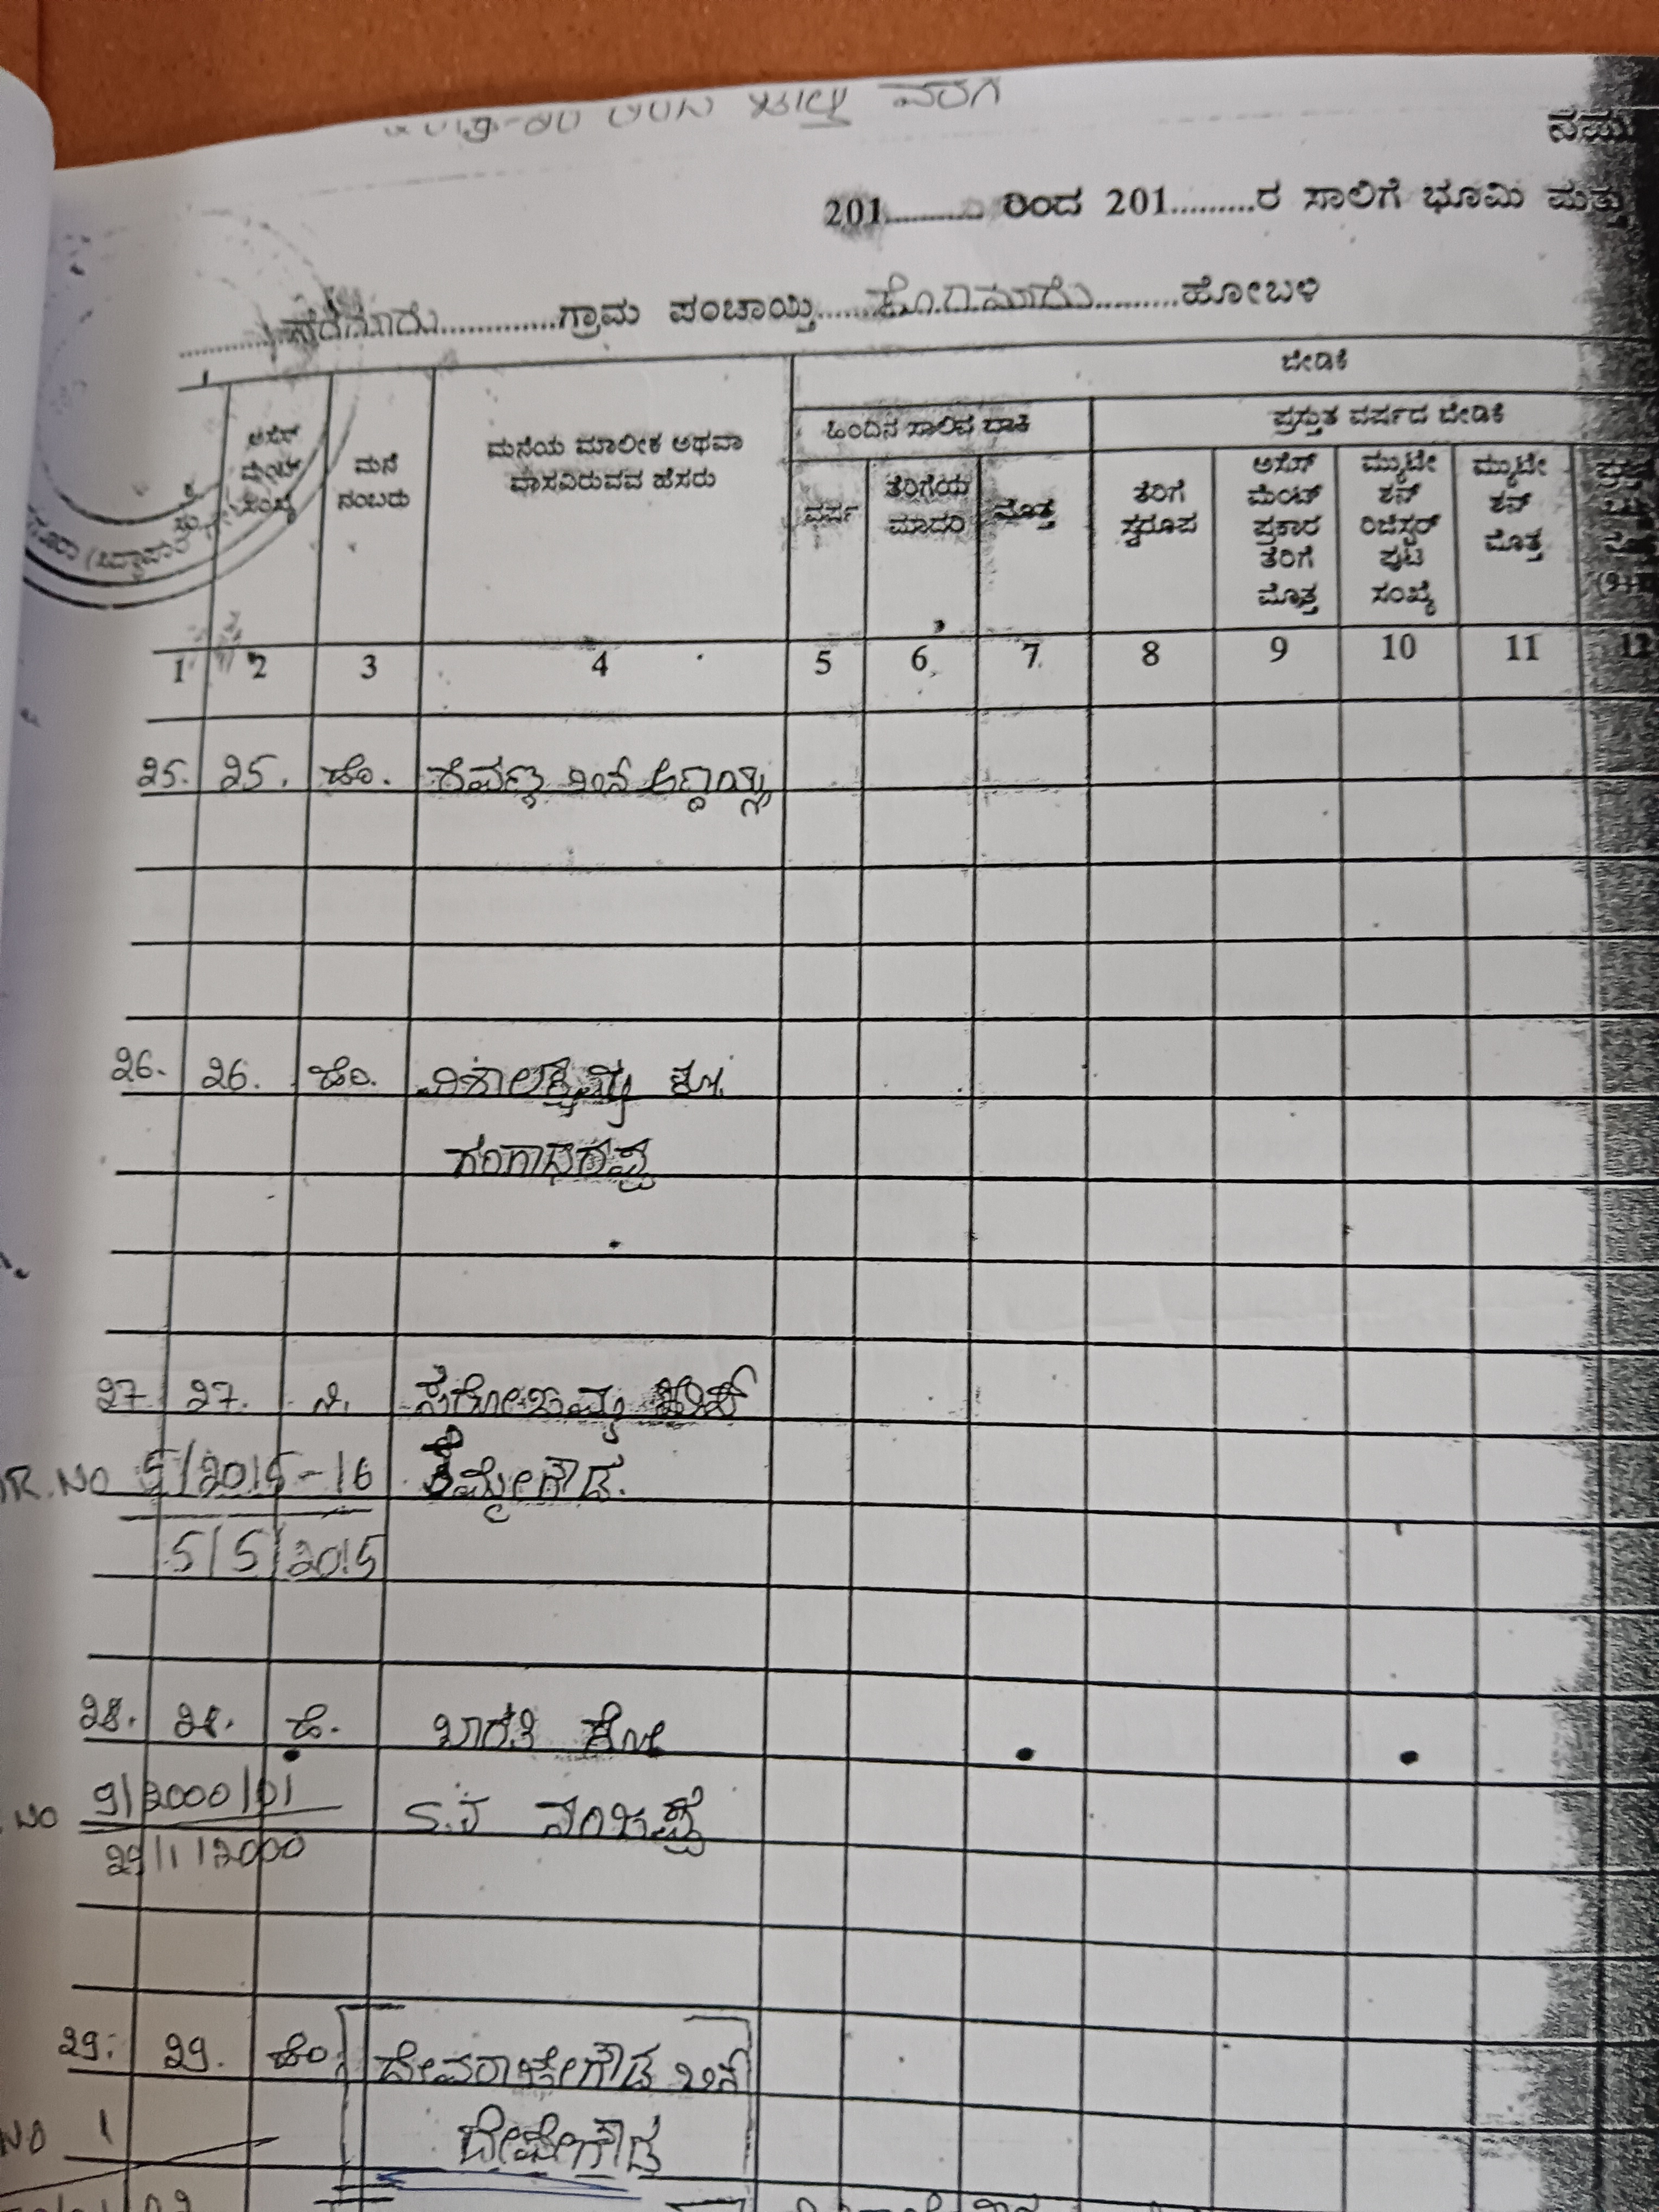 201.......... ರಿಂದ 201.........ರ ಸಾಲಿಗೆ ಭೂಮಿ ಮತ್ತು
.............ಗ್ರಾಮ ಪಂಚಾಯ್ತಿ...............ಹೋಬಳಿ
ಬೇಡಿಕೆ
ಹಿಂದಿನ ಸಾಲಿನ ಬಾಕಿ
ಪ್ರಸ್ತುತ ವರ್ಷದ ಬೇಡಿಕೆ
ಅಸೆಸ್
ಮೆಂಟ್
ಸಂಖ್ಯೆ
ಮನೆ
ನಂಬರು
ಮನೆಯ ಮಾಲೀಕ ಅಥವಾ
ವಾಸವಿರುವವ ಹೆಸರು
ವರ್ಷ
ತೆರಿಗೆಯ
ಮಾದರಿ
ಮೊತ್ತ
ತೆರಿಗೆ
ಸ್ವರೂಪ
ಅಸೆಸ್
ಮೆಂಟ್
ಪ್ರಕಾರ
ತೆರಿಗೆ
ಮೊತ್ತ
ಮ್ಯುಟೇ
ಶನ್
ರಿಜಿಸ್ಟರ್
ಪುಟ
ಸಂಖ್ಯೆ
ಮ್ಯುಟೇ
ಶನ್
ಮೊತ್ತ
1 2 3 4 5 6 7 8 9 10 11 12
25. 25. ಹೆಂ. ರೇವಣ್ಣ ಬಿನ್
26. 26. ಹೆಂ. ವಿಶಾಲಕ್ಷಮ್ಮ ಕೋ
ಗಂಗಾಧರಪ್ಪ
27 27. ನಿ. ಸರೋಜಮ್ಮ
R.NO 5/2015-16 ತಿಮ್ಮೇಗೌಡ.
5/5/2015
28. 28. ಹೆ. ಭಾರತಿ ಕೋಂ
NO 9/2000/01 ನಂಜಪ್ಪ
29/1/2000
29. 29. ಹೆಂ ದೇವರಾಜೇಗೌಡ ಬಿನ್
NO 1 ದೇವೇಗೌಡ